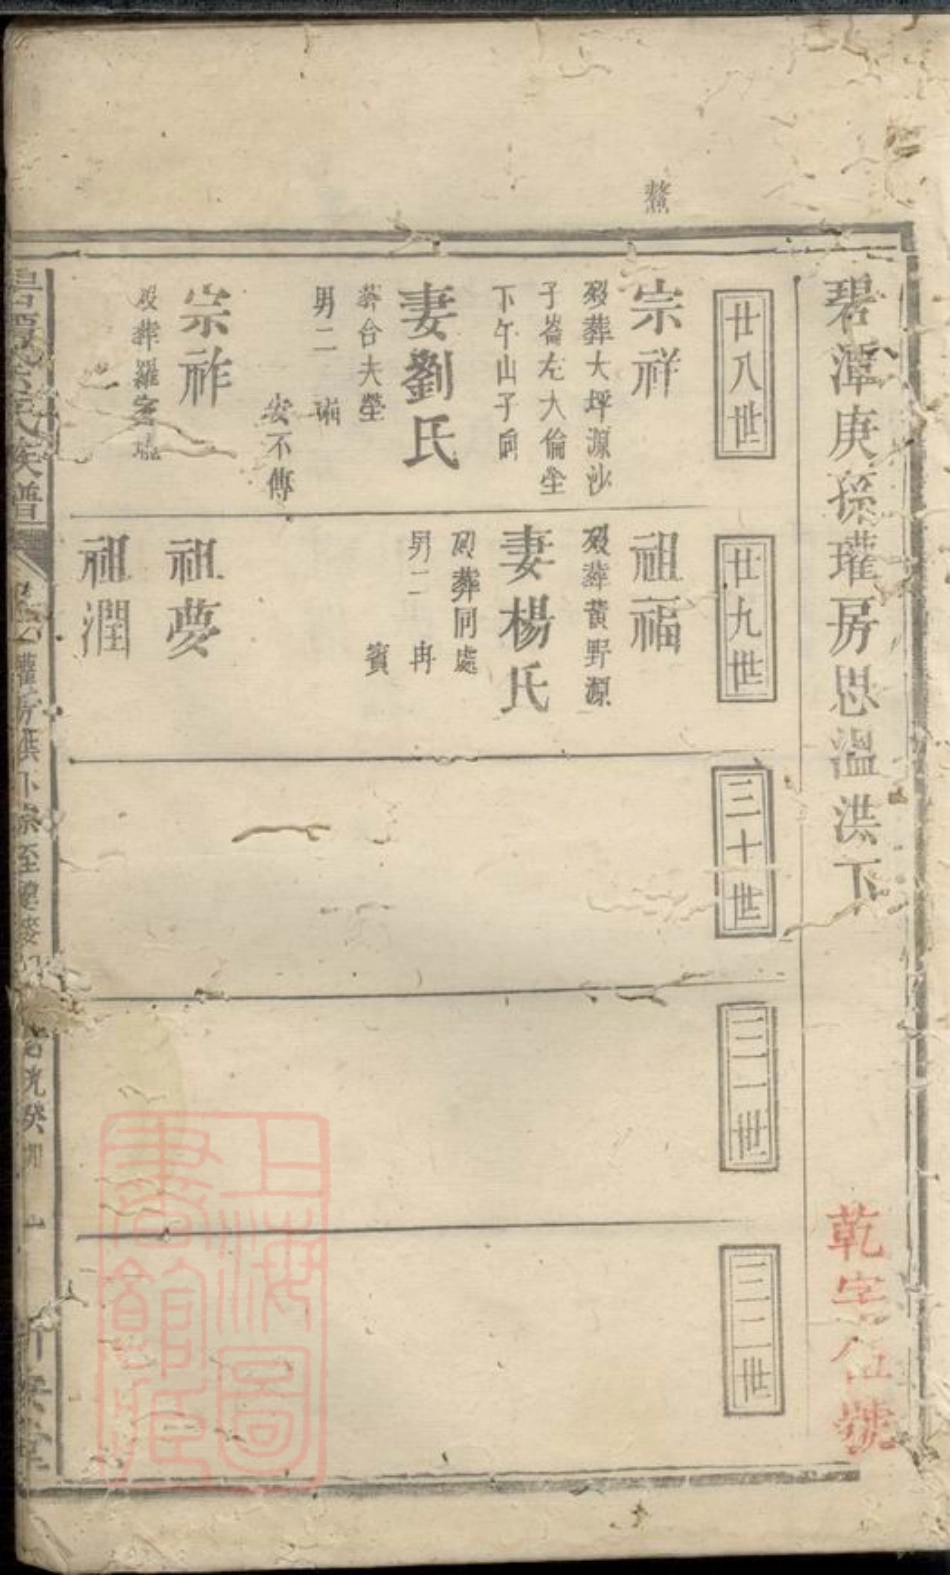 鰲
碧潭庚孫瓘房思溫洪下
乾字伍號
廿八世
宗祥
歿葬大坪源沙
子崙左大倫坐
下午山子向
妻劉氏
葬台夫塋
男二
安不傳
宗祚
歿葬羅
廿九世
祖福
歿葬黄野源
妻楊氏
歿葬同處
男二 冉
賓
祖夢
祖潤
三十世
三一世
三二世
族譜
上海圖
書館藏